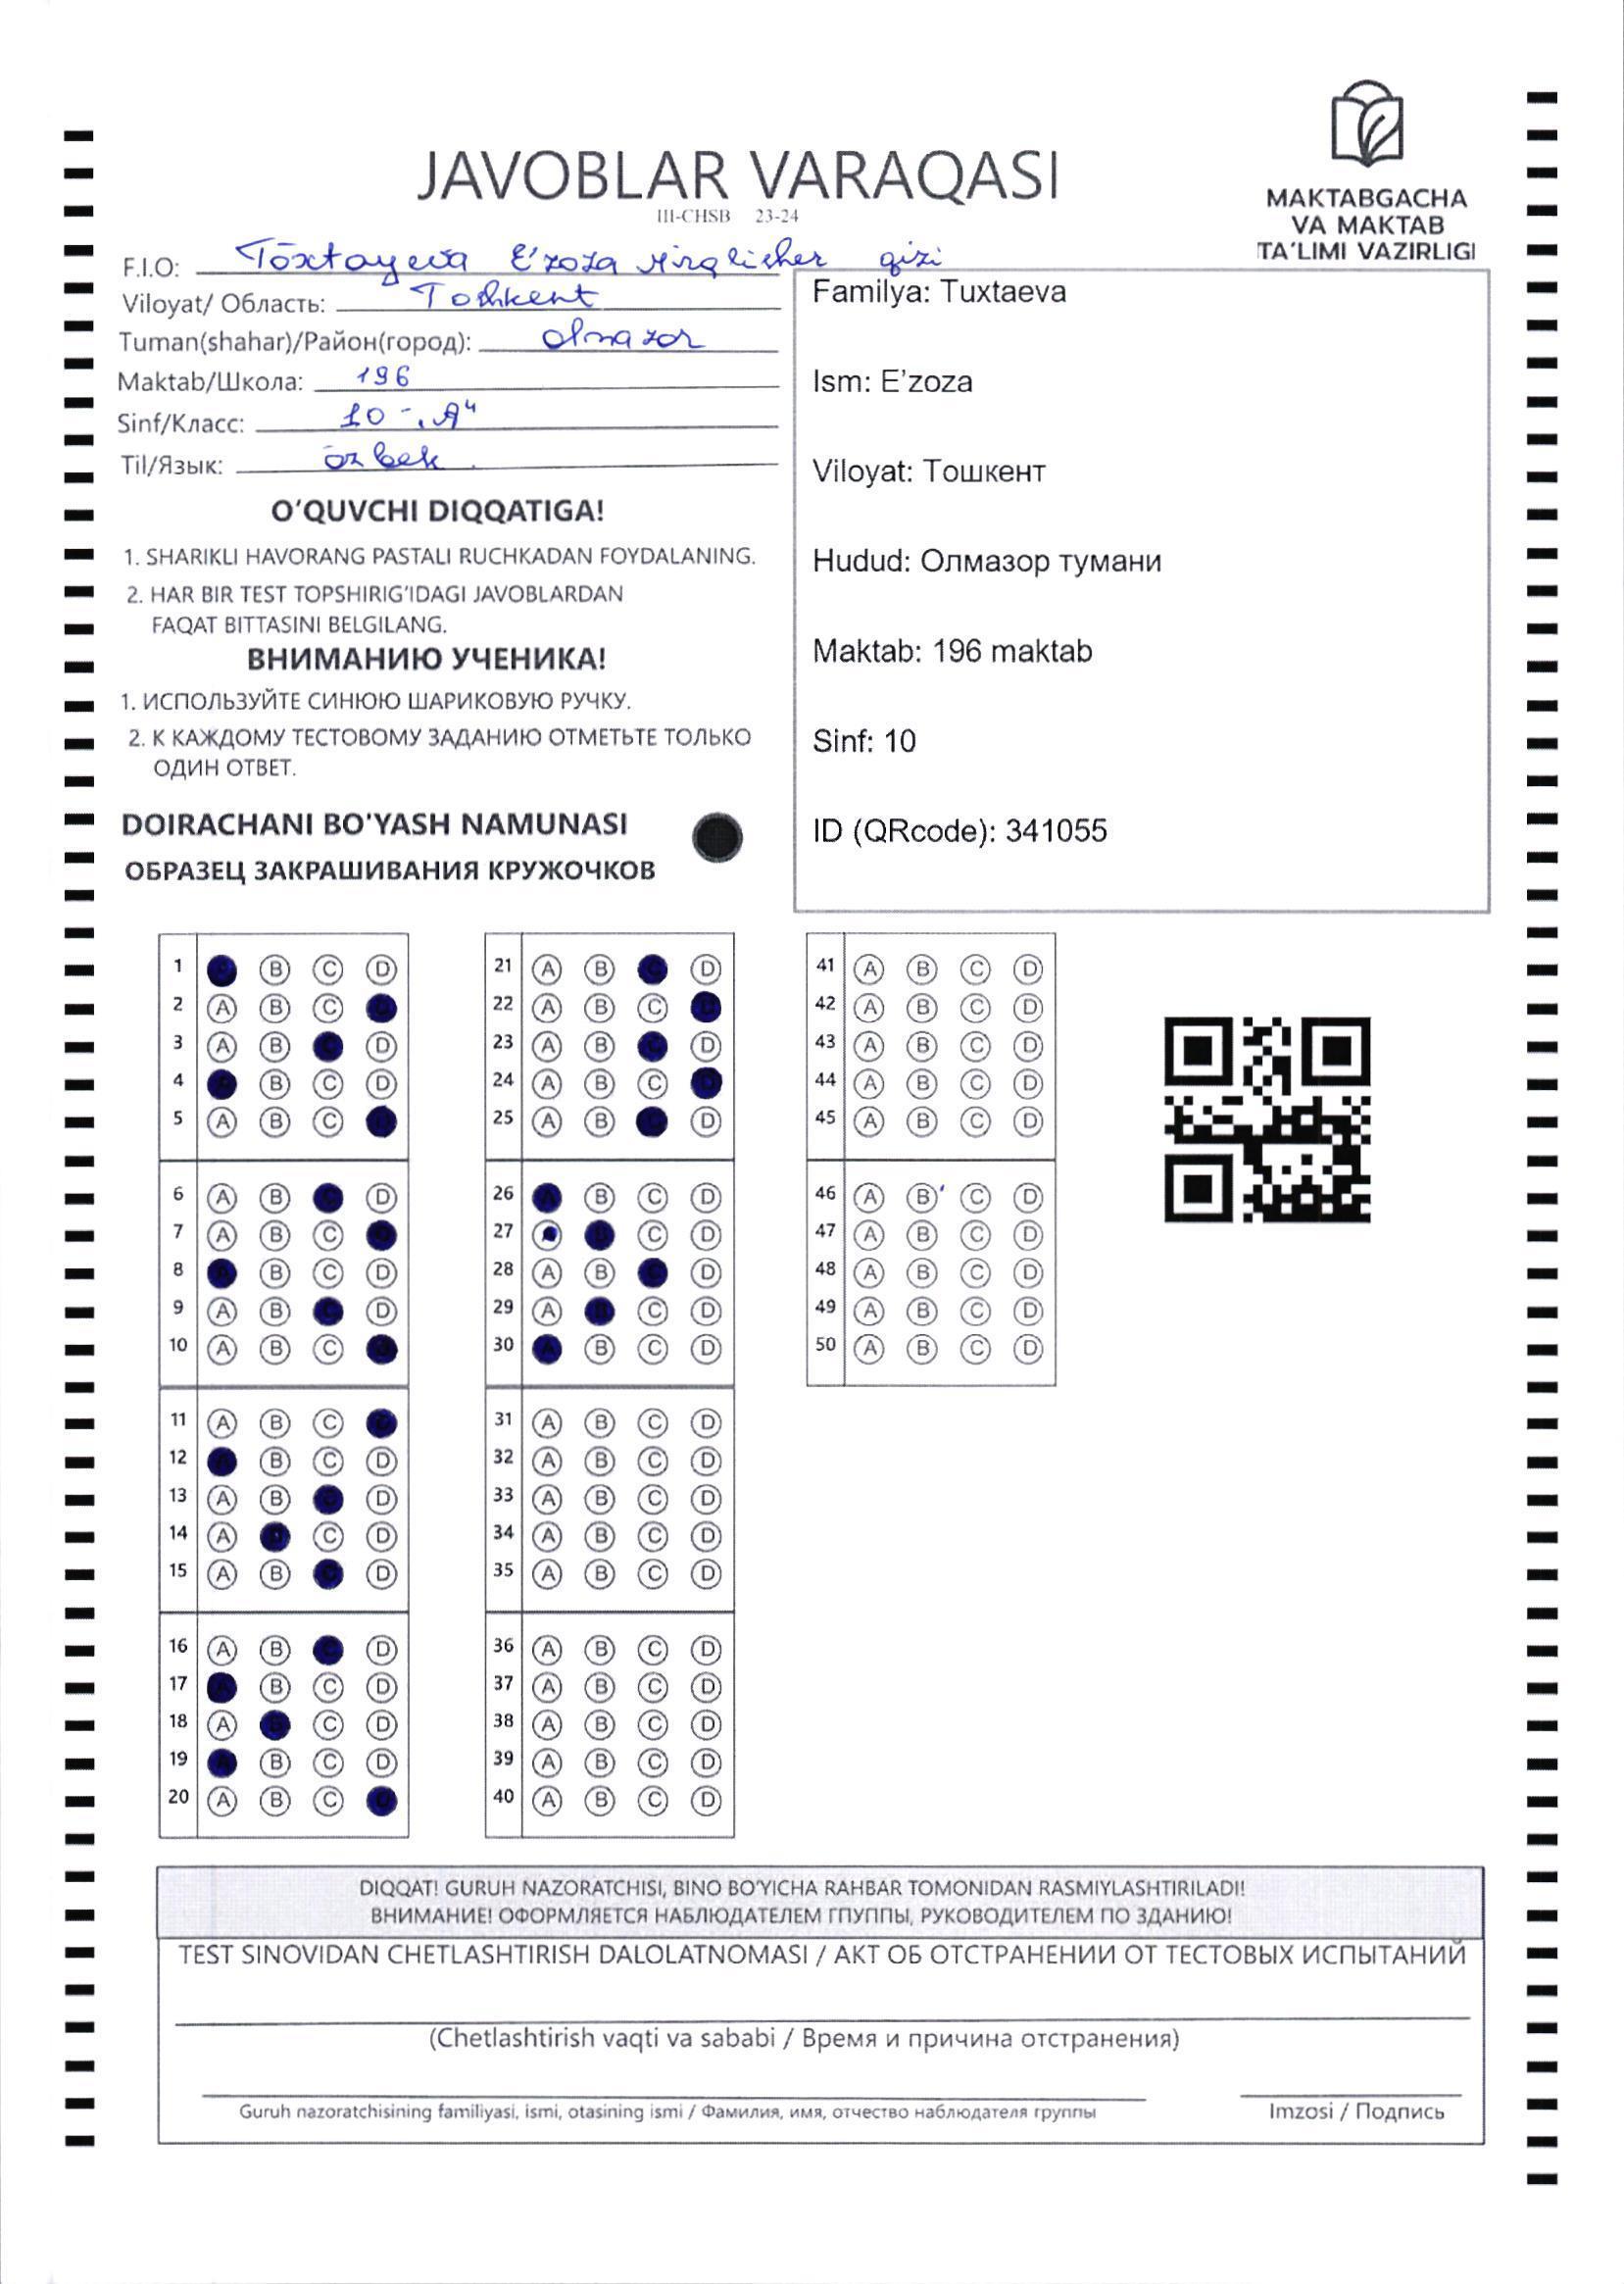 JAVOBLAR VARAQASI
III-CHSB 23-24
MAKTABGACHA
VA MAKTAB
TA'LIMI VAZIRLIGI
F.I.O: Tōxtayeva E'zoza qizi
Viloyat/ Область: Toshkent
Tuman(shahar)/Район(город): Olmazor
Maktab/Школа: 196
Sinf/Класс: 10-"A"
Til/Язык: ōzbek
Familya: Tuxtaeva
Ism: E'zoza
Viloyat: Тошкент
Hudud: Олмазор тумани
Maktab: 196 maktab
Sinf: 10
ID (QRcode): 341055
O'QUVCHI DIQQATIGA!
1. SHARIKLI HAVORANG PASTALI RUCHKADAN FOYDALANING.
2. HAR BIR TEST TOPSHIRIG'IDAGI JAVOBLARDAN
FAQAT BITTASINI BELGILANG.
ВНИМАНИЮ УЧЕНИКА!
1. ИСПОЛЬЗУЙТЕ СИНЮЮ ШАРИКОВУЮ РУЧКУ.
2. К КАЖДОМУ ТЕСТОВОМУ ЗАДАНИЮ ОТМЕТЬТЕ ТОЛЬКО
ОДИН ОТВЕТ.
DOIRACHANI BO'YASH NAMUNASI
ОБРАЗЕЦ ЗАКРАШИВАНИЯ КРУЖОЧКОВ
1 B C D
2 A B C
3 A B D
4 B C D
5 A B C
6 A B D
7 A B C
8 A B C D
9 A B C D
10 A B C
11 A B C
12 B C D
13 A B D
14 A C D
15 A B D
16 A B D
17 B C D
18 A C D
19 A B C D
20 A B C
21 A B D
22 A B C
23 A B C D
24 A B C
25 A B D
26 A B C D
27 B C D
28 A B D
29 A B C D
30 A B C D
31 A B C D
32 A B C D
33 A B C D
34 A B C D
35 A B C D
36 A B C D
37 A B C D
38 A B C D
39 A B C D
40 A B C D
41 A B C D
42 A B C D
43 A B C D
44 A B C D
45 A B C D
46 A B C D
47 A B C D
48 A B C D
49 A B C D
50 A B C D
DIQQAT! GURUH NAZORATCHISI, BINO BO'YICHA RAHBAR TOMONIDAN RASMIYLASHTIRILADI!
ВНИМАНИЕ! ОФОРМЛЯЕТСЯ НАБЛЮДАТЕЛЕМ ГПУППЫ, РУКОВОДИТЕЛЕМ ПО ЗДАНИЮ!
TEST SINOVIDAN CHETLASHTIRISH DALOLATNOMASI / АКТ ОБ ОТСТРАНЕНИИ ОТ ТЕСТОВЫХ ИСПЫТАНИЙ
(Chetlashtirish vaqti va sababi / Время и причина отстранения)
Guruh nazoratchisining familiyasi, ismi, otasining ismi / Фамилия, имя, отчество наблюдателя группы
Imzosi / Подпись